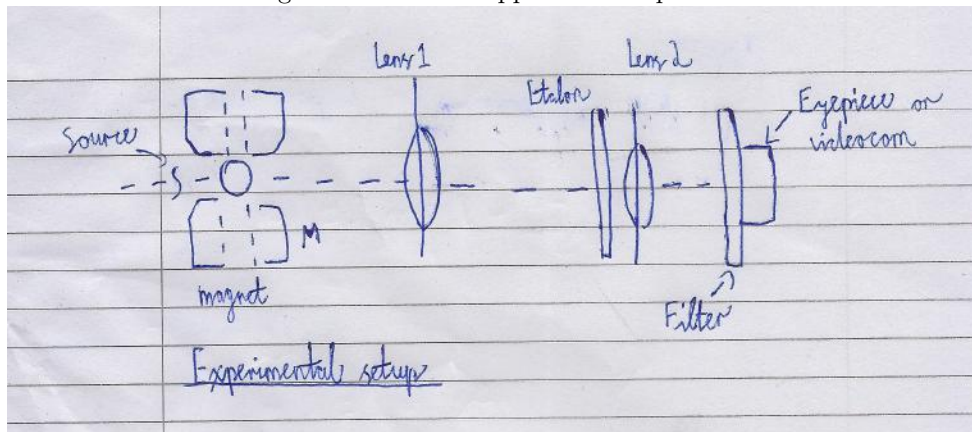 Lens 1
Lens 2
Etalon
Eyepiece or
videocom
Source
S
M
magnet
Filter
Experimental setup